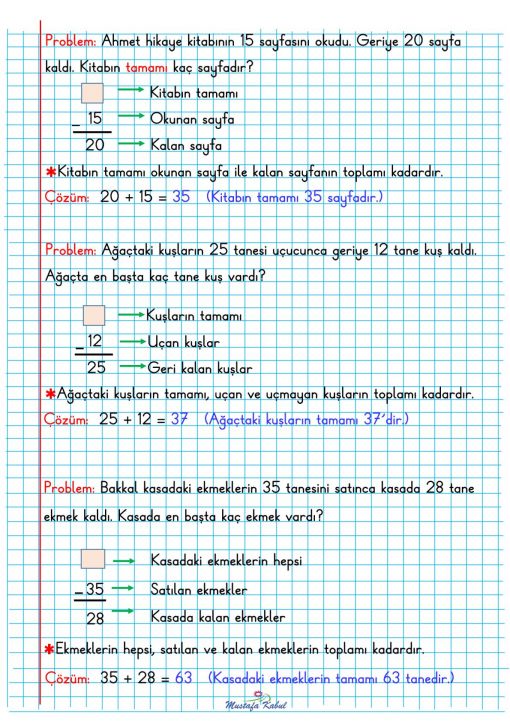 Problem: Ahmet hikaye kitabının 15 sayfasını okudu. Geriye 20 sayfa
kaldı. Kitabın tamamı kaç sayfadır?
Kitabın tamamı
– 15 Okunan sayfa
20 Kalan sayfa
*Kitabın tamamı okunan sayfa ile kalan sayfanın toplamı kadardır.
Çözüm: 20 + 15 = 35 (Kitabın tamamı 35 sayfadır.)
Problem: Ağaçtaki kuşların 25 tanesi uçucunca geriye 12 tane kuş kaldı.
Ağaçta en başta kaç tane kuş vardı?
Kuşların tamamı
– 12 Uçan kuşlar
25 Geri kalan kuşlar
*Ağaçtaki kuşların tamamı, uçan ve uçmayan kuşların toplamı kadardır.
Çözüm: 25 + 12 = 37 (Ağaçtaki kuşların tamamı 37’dir.)
Problem: Bakkal kasadaki ekmeklerin 35 tanesini satınca kasada 28 tane
ekmek kaldı. Kasada en başta kaç ekmek vardı?
Kasadaki ekmeklerin hepsi
– 35 Satılan ekmekler
28 Kasada kalan ekmekler
*Ekmeklerin hepsi, satılan ve kalan ekmeklerin toplamı kadardır.
Çözüm: 35 + 28 = 63 (Kasadaki ekmeklerin tamamı 63 tanedir.)
Mustafa Kabul